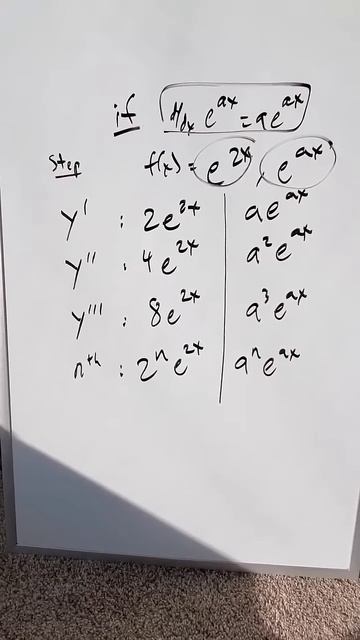 if d/dx e^ax = ae^ax
Step f(x) = e^2x, e^ax
y' : 2e^2x ae^ax
y'' : 4e^2x a^2e^ax
y''' : 8e^2x a^3e^ax
n^th : 2^n e^2x a^n e^ax